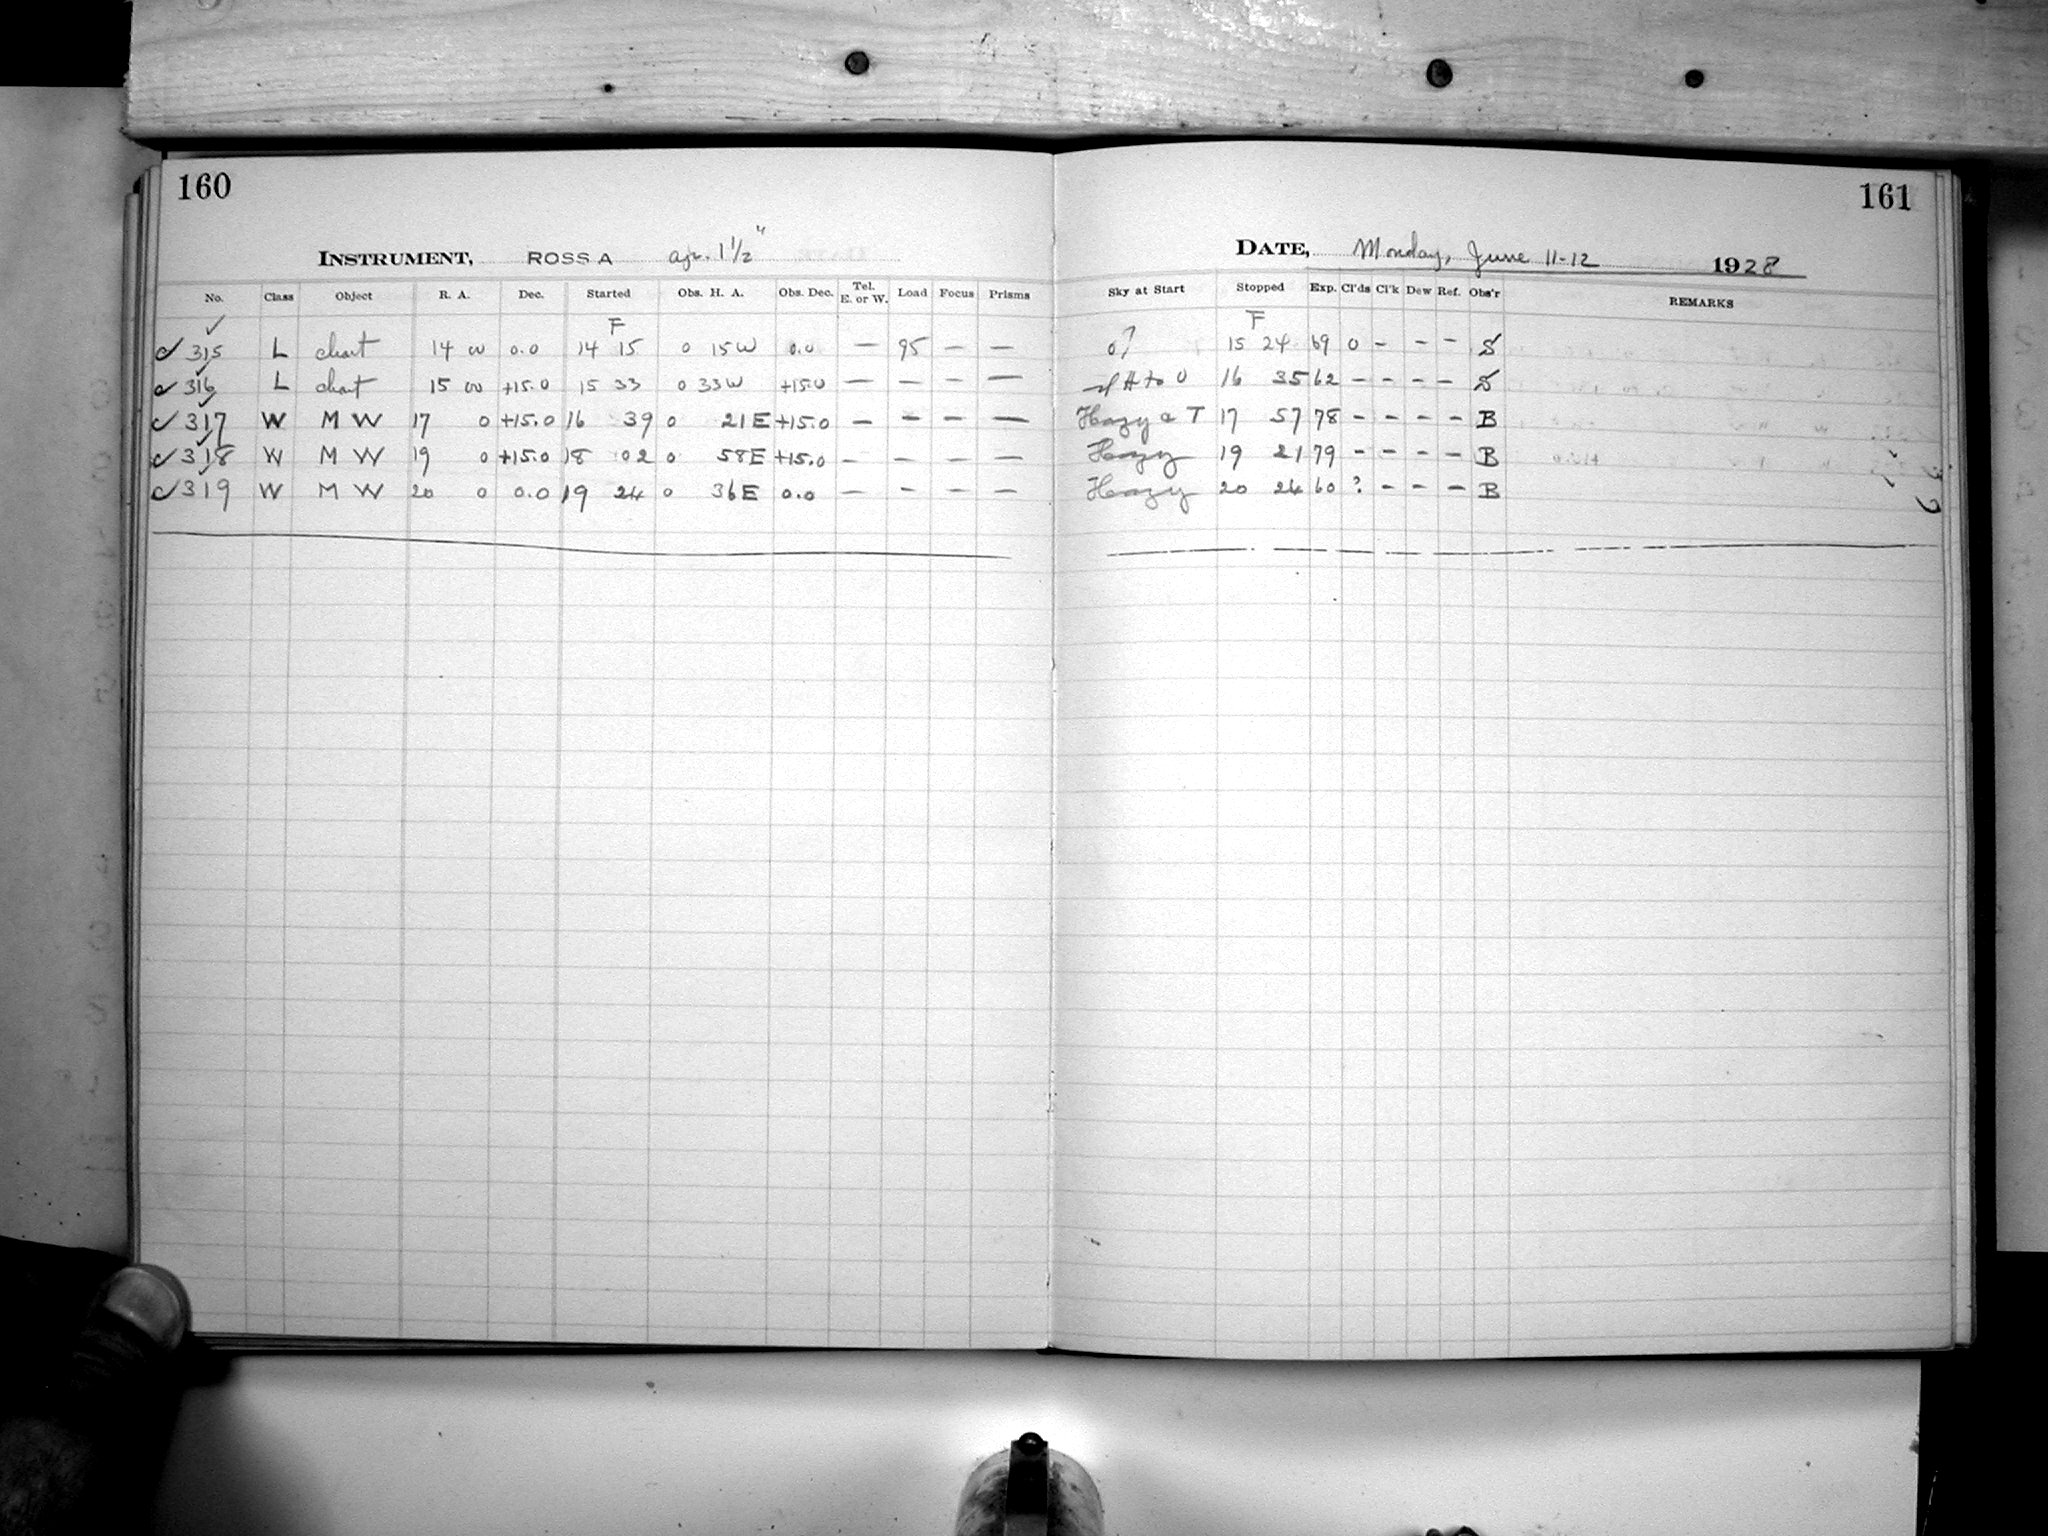 160
INSTRUMENT, ROSS A ap. 1 1/2"
No. Class Object R. A. Dec. Started Obs. H. A. Obs. Dec. Tel. E. or W. Load Focus Prisms
F
✓ 315 L chart 14 00 0.0 14 15 0 15 W 0.0 — 95 — —
✓ 316 L chart 15 00 +15.0 15 33 0 33 W +15.0 — — — —
✓ 317 W M W 17 0 +15.0 16 39 0 21 E +15.0 — — — —
✓ 318 W M W 19 0 +15.0 18 02 0 58 E +15.0 — — — —
✓ 319 W M W 20 0 0.0 19 24 0 36 E 0.0 — — — —
161
DATE, Monday, June 11-12 1928
Sky at Start Stopped Exp. Cl'ds Cl'k Dew Ref. Obs'r REMARKS
F
0? 15 24 69 0 - - - S
H to 0 16 35 62 - - - - S
Hazy & T 17 57 78 - - - - B
Hazy 19 21 79 - - - - B
Hazy 20 24 60 ? - - - B